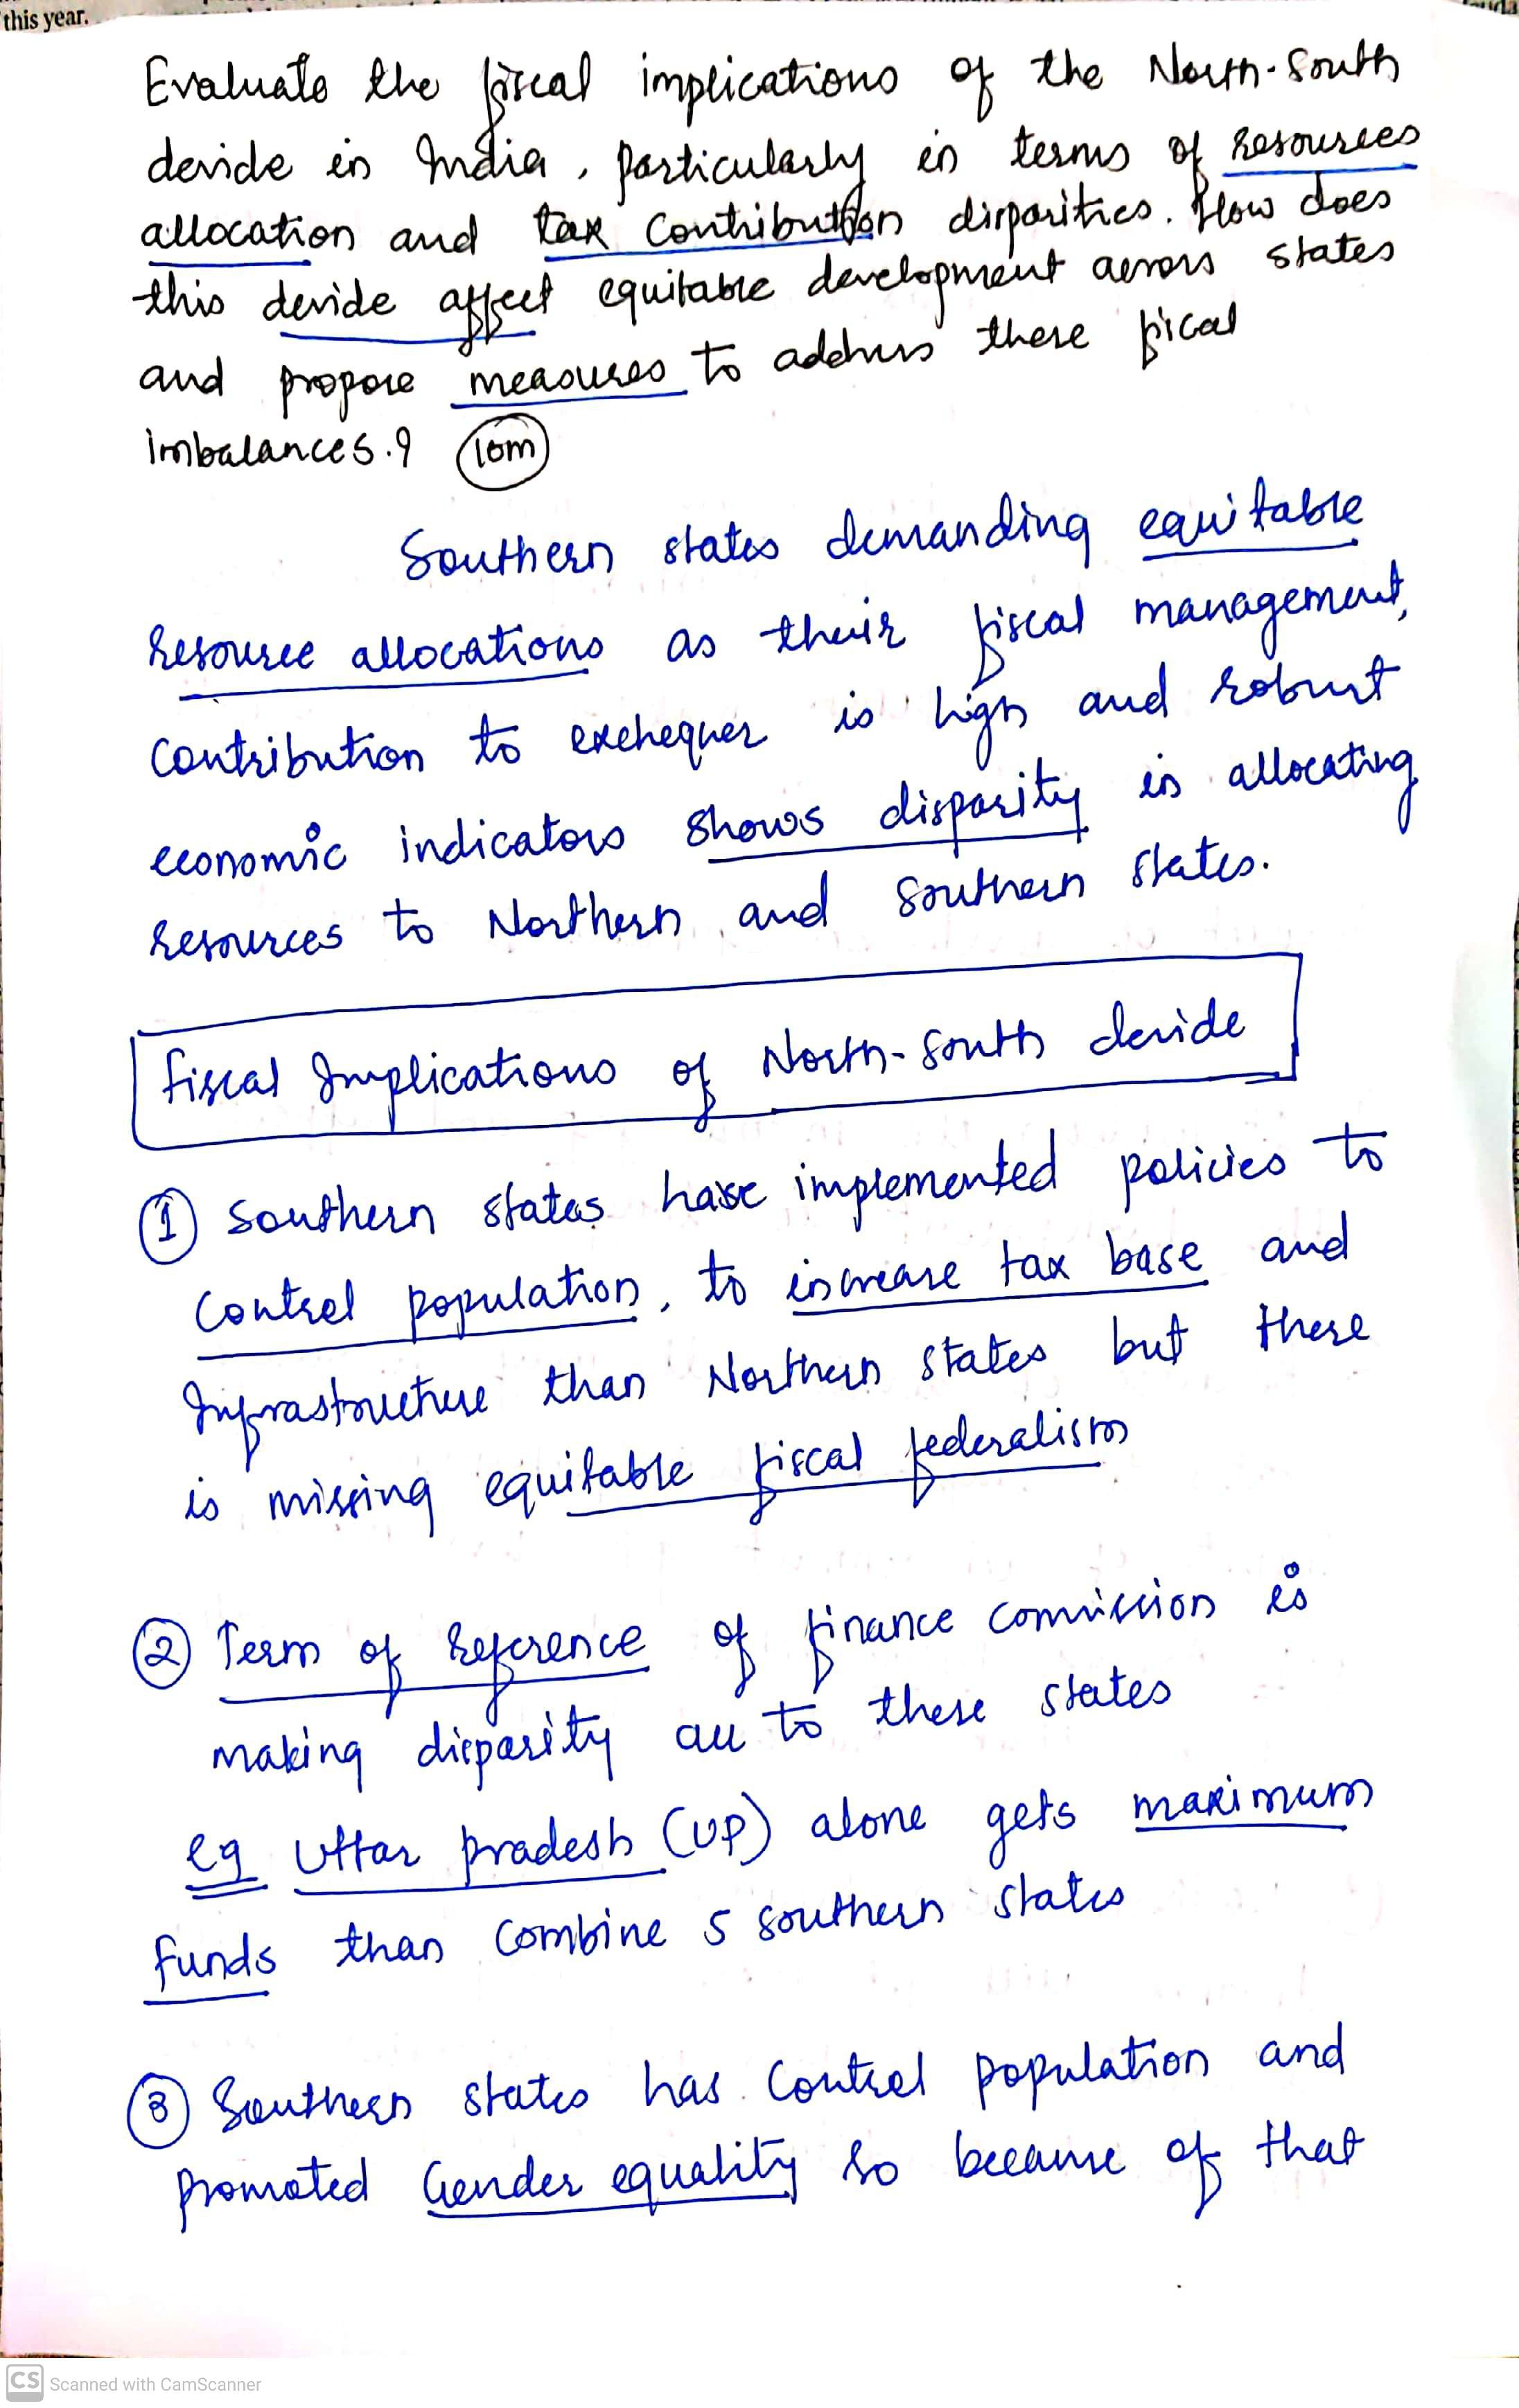 this year.
Evaluate the fiscal implications of the North-South
devide in India, particularly in terms of resources
allocation and tax contribution disparities. How does
this devide affect equitable development across states
and propose measures to address these fiscal
imbalances.? (10m)
Southern states demanding equitable
resource allocations as their fiscal management,
contribution to exchequer is high and robust
economic indicators shows disparity in allocating
resources to Northern and Southern states.
Fiscal Implications of North-South devide
① Southern states have implemented policies to
control population, to increase tax base and
Infrastructure than Northern states but there
is missing equitable fiscal federalism
② Term of Reference of finance commission is
making disparity all to these states
eg Uttar Pradesh (UP) alone gets maximum
funds than combine 5 southern states
③ Southern states has control population and
promoted Gender equality so because of that
CS Scanned with CamScanner